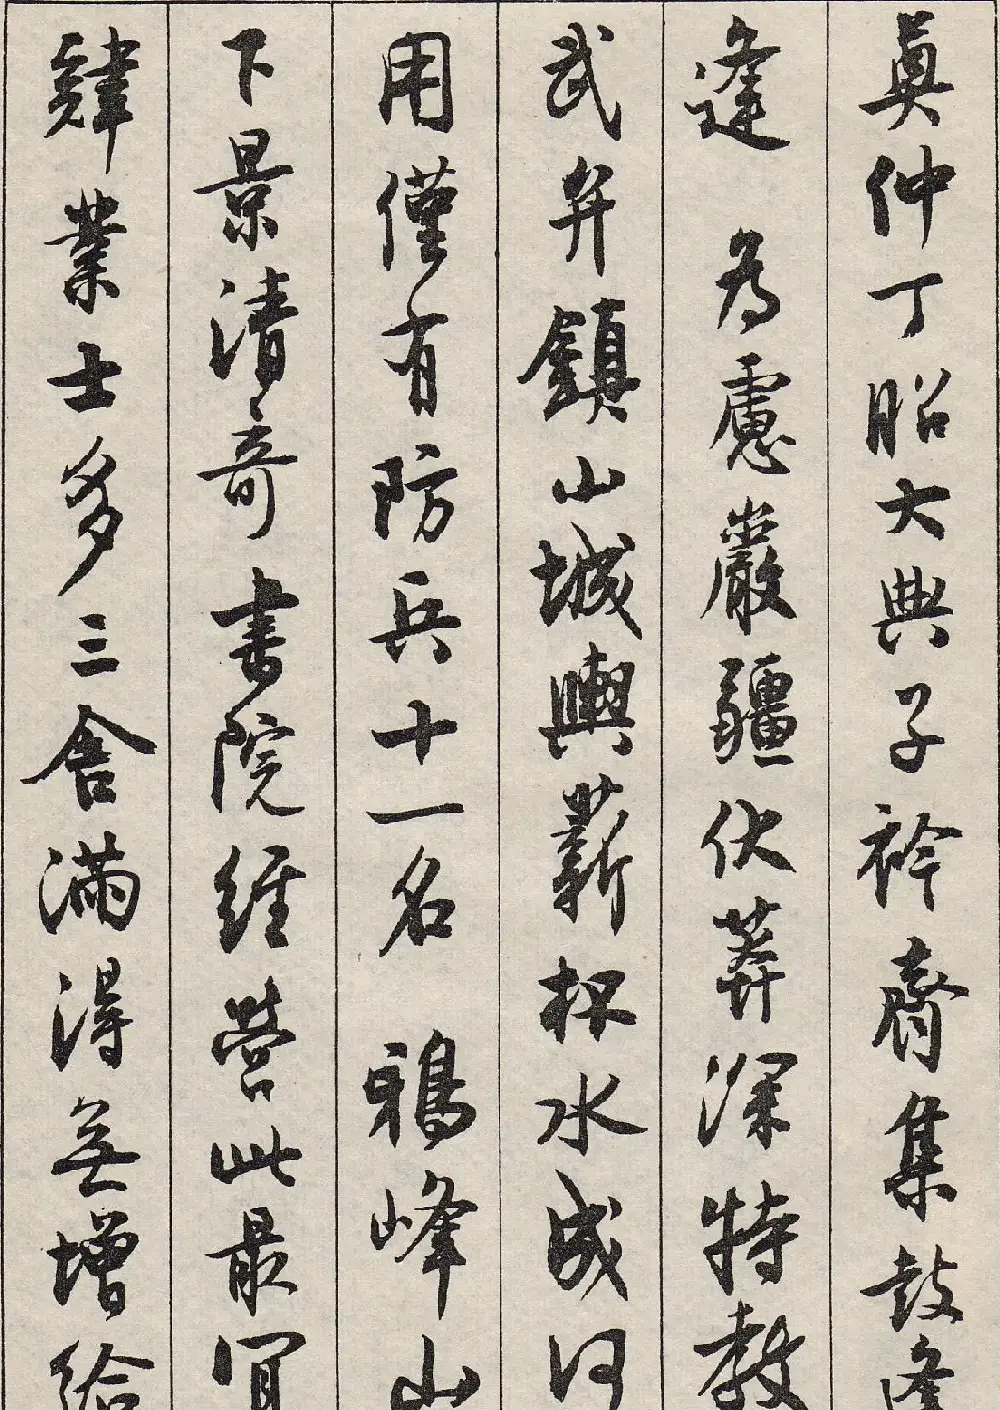 奠仲丁昭大典子衿齊集鼓逢
逢 为慮嚴疆伏莽深特教
武弁鎮山城輿薪杯水成何
用僅有防兵十一名 鴉峰山
下景清奇書院經營此最宜
肄業士多三舍滿浔無增給